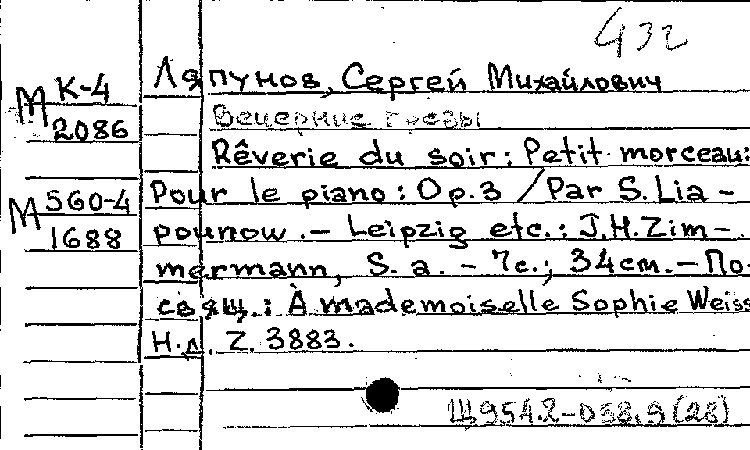 432
М К-4
2086
Ляпунов, Сергей Михайлович
Вечерние грезы
Rêverie du soir: Petit morceau:
М 560-4
1688
Pour le piano: Op.3 / Par S. Lia-
pounow.- Leipzig etc.: J.H.Zim-
mermann, S. a. - 7с.; 34см.-По-
свящ.: À mademoiselle Sophie Weiss
Н.д. Z. 3883.
Щ954.2-038.9(28)